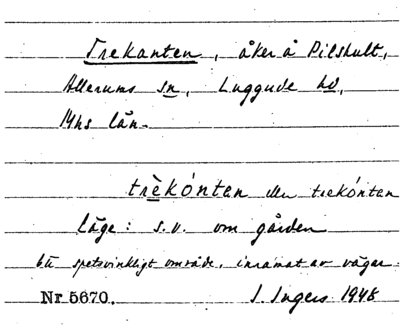 Trekanten, åker å Pilshult,
Allerums sn, Luggude hd,
Mhs län.
trèkónten eller trekónten
Läge: s.v. om gården
Ett spetsvinkligt område, inramat av vägar.
Nr 5670. I. Ingers 1948